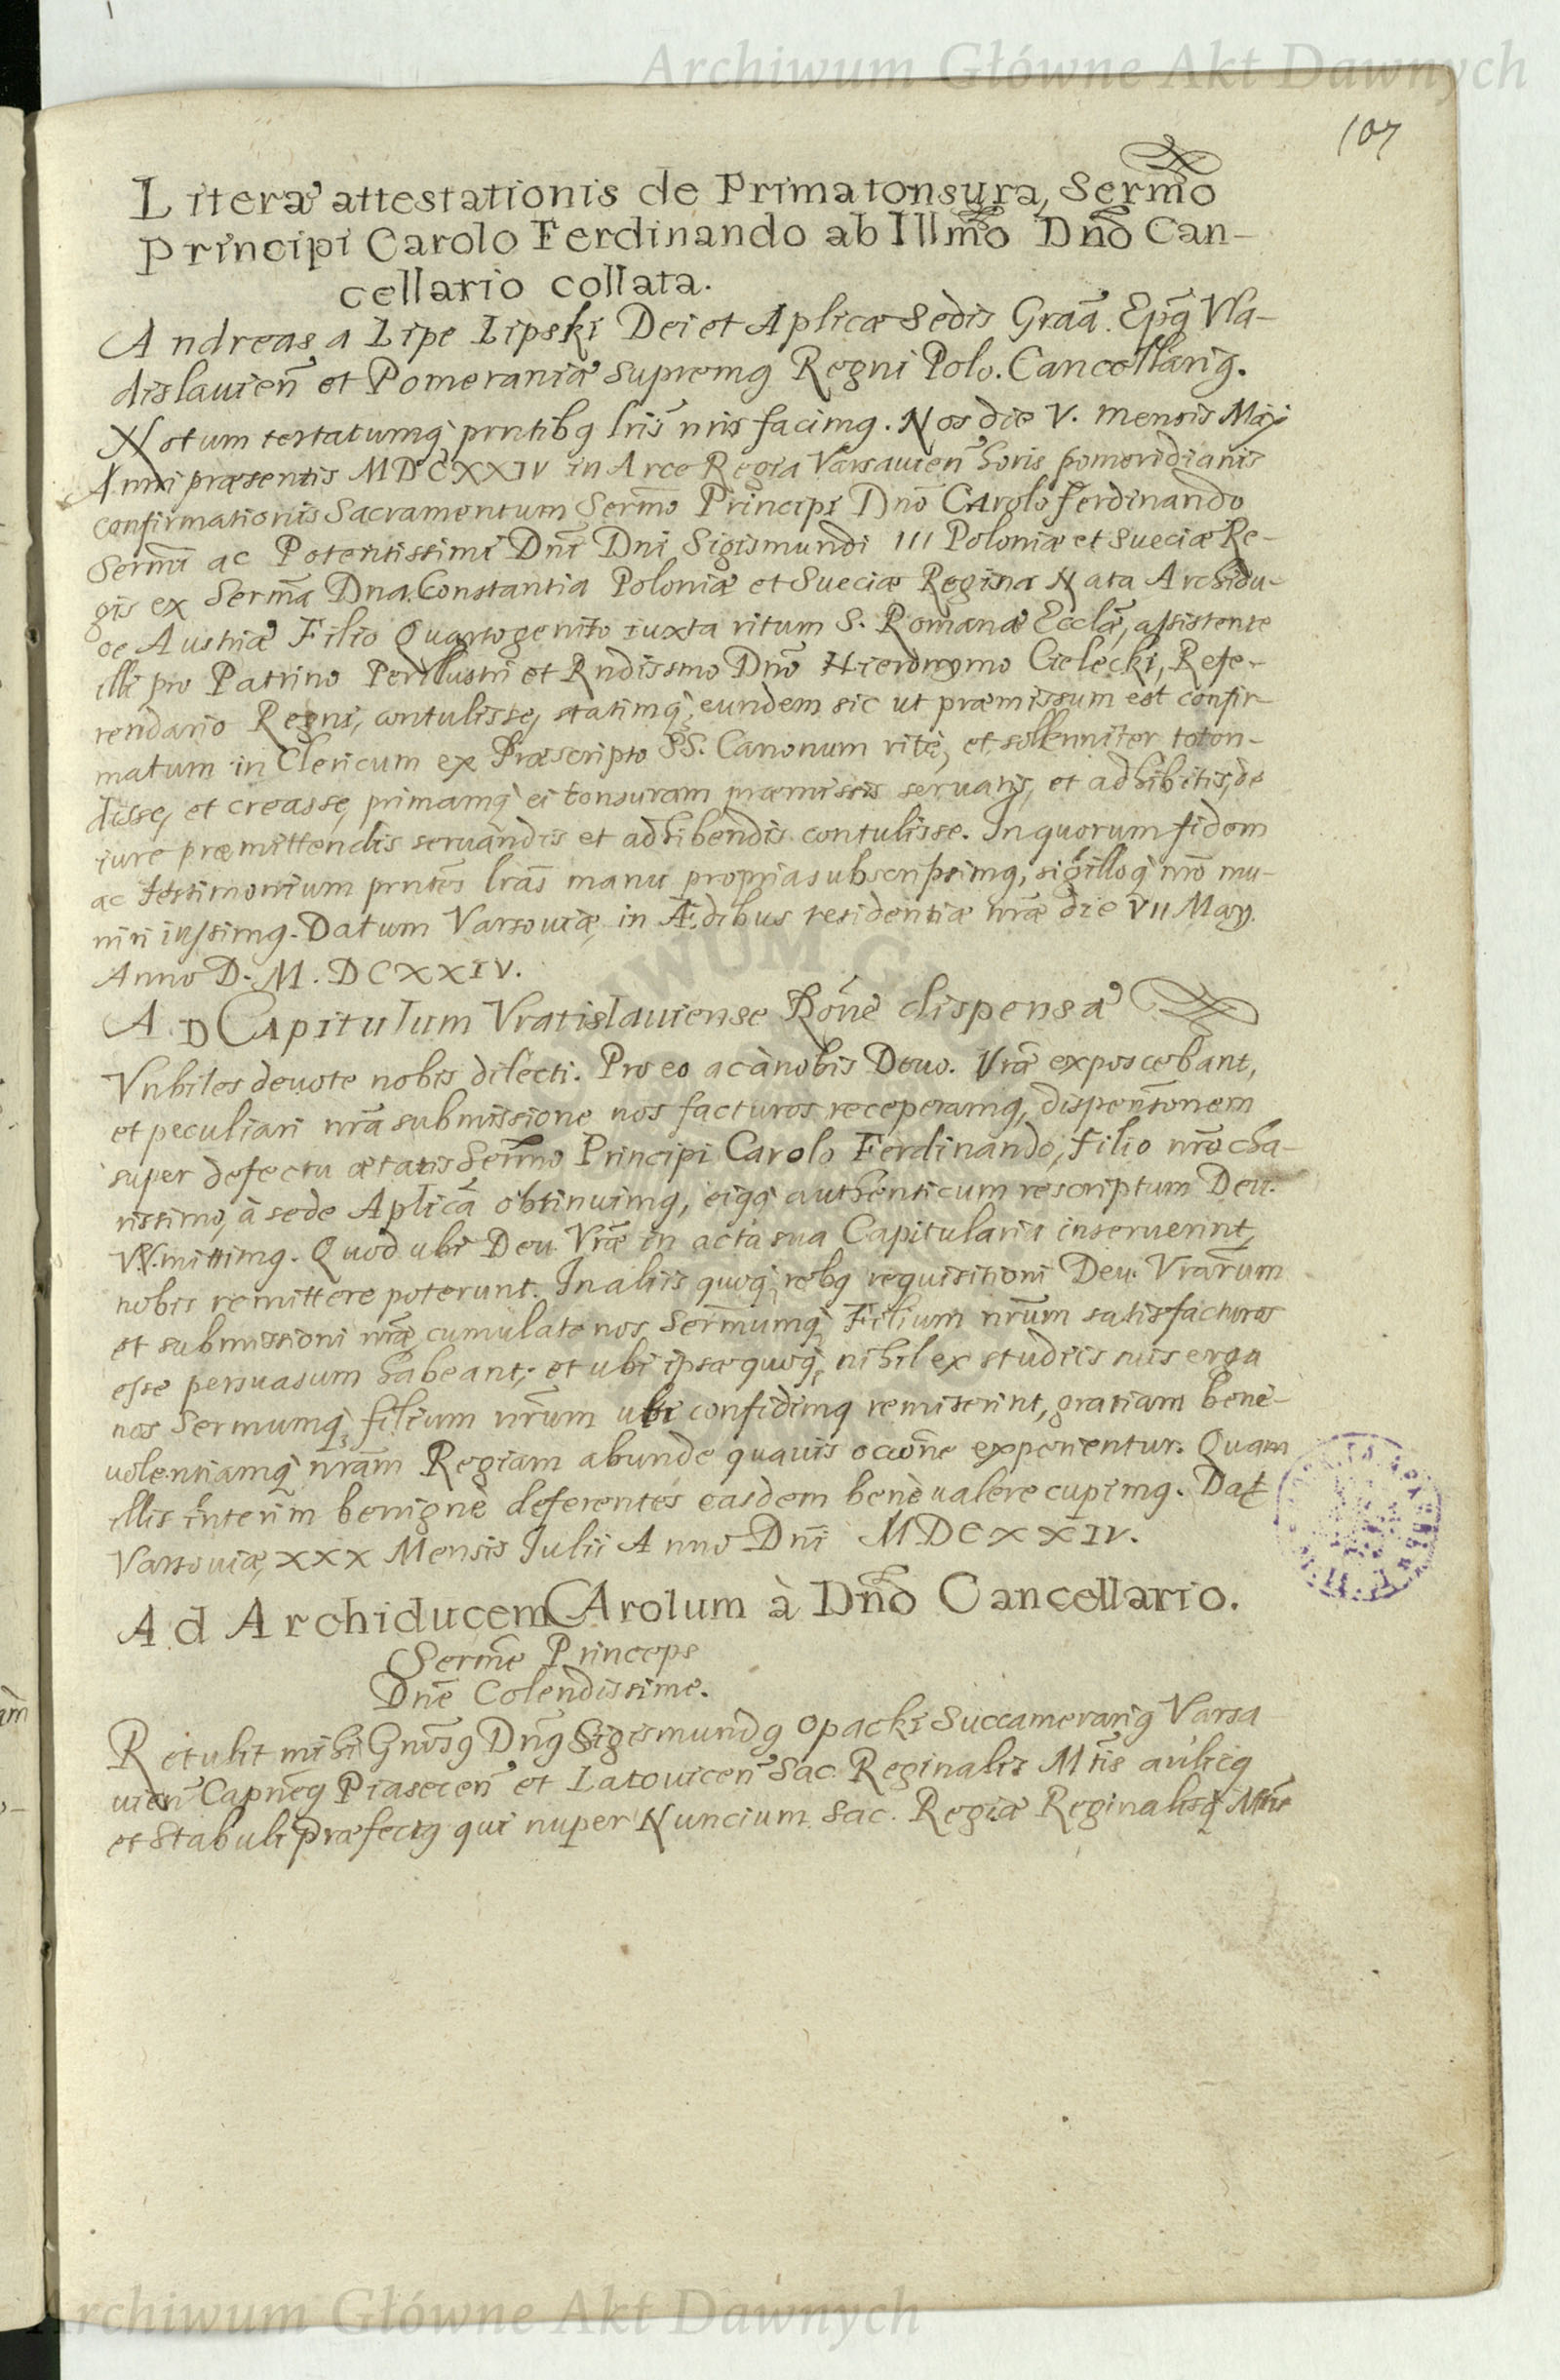 Archiwum Główne Akt Dawnych
107
Literæ attestationis de Prima tonsura, Sermo
Principi Carolo Ferdinando ab Illmo Dno Can-
cellario collata.
Andreas a Lipe Lipski Dei et Aplicæ Sedis Graã. Epq Vla-
dislauien̄ et Pomeraniæ supremq Regni Polo. Cancellariq.
Notum testatumq prntibq lris nris facimq. Nos die V. mensis Maij
Anni præsentis MDCXXIV in Arce Regia Varsauien̄ horis pomeridianis
confirmationis Sacramentum Sermo Principi Dno Carolo Ferdinando
Sermi ac Potentissimi Dni Dni Sigismundi III Poloniæ et Sueciæ Re-
gis ex Serma Dna. Constantia Poloniæ et Sueciæ Regina Nata Archidu-
ce Austriæ Filio Quartogenito iuxta ritum S. Romanæ Ecclæ, assistente
illi pro Patrino Perillustri et Rndissmo Dno Hieronymo Cielecki, Refe-
rendario Regni, contulisse, statimq eundem sic ut præmissum est confir-
matum in Clericum ex Præscripto SS. Canonum ritè, et sollenniter toton-
disse, et creasse, primamq ei tonsuram præmissis seruatis, et adhibitis, de
iure præmittendis seruandis et adhibendis contulisse. In quorum fidem
ac testimonium prntes lras manu propria subscripsimq, sigilloq nro mu-
niri iussimq. Datum Varsouiæ, in Ædibus residentiæ nræ die VII Maij.
Anno D. M. DCXXIV.
AD Capitulum Vratislauiense Rõne dispensæ
Vnbiles deuote nobis dilecti. Pro eo ac à nobis Deuo. Vræ exposcebant,
et peculiari nra submissione nos facturos receperamq, dispensonem
super defectu ætatis Sermo Principi Carolo Ferdinando, Filio nro cha-
rissimo, à sede Aplica obtinuimq, eiqq authenticum rescriptum Deu.
VV. mittimq. Quod ubi Deu. Vræ in acta sua Capitularia inseruerint,
nobis remittere poterunt. In aliis quoq rebq requisitioni Deu. Vrarum
et submissioni nræ cumulate nos Sermumq Filium nrum satisfacturos
esse persuasum habeant; et ubi ipsæ quoq nihil ex studiis suis erga
nos Sermumq filium nrum ubi confidimq remiserint, gratiam bene-
uolentiamq nram Regiam abunde quauis occone experientur. Quam
illis interim benignè deferentes easdem benè ualere cupimq. Dat
Varsouiæ, XXX Mensis Julii Anno Dni MDCXXIV.
Ad Archiducem Carolum à Dno Cancellario.
Serme Princeps
Dne Colendissime.
Retulit mihi Gnosq Dnq Sigismundq Opacki Succamerariq Varsa
uien̄ Capneq Piasecen̄ et Latouicen̄ Sac. Reginalis Mtis aulicq
et Stabuli Præfectq qui nuper Nuncium Sac. Regiæ Reginalisq Mtis
Archiwum Główne Akt Dawnych